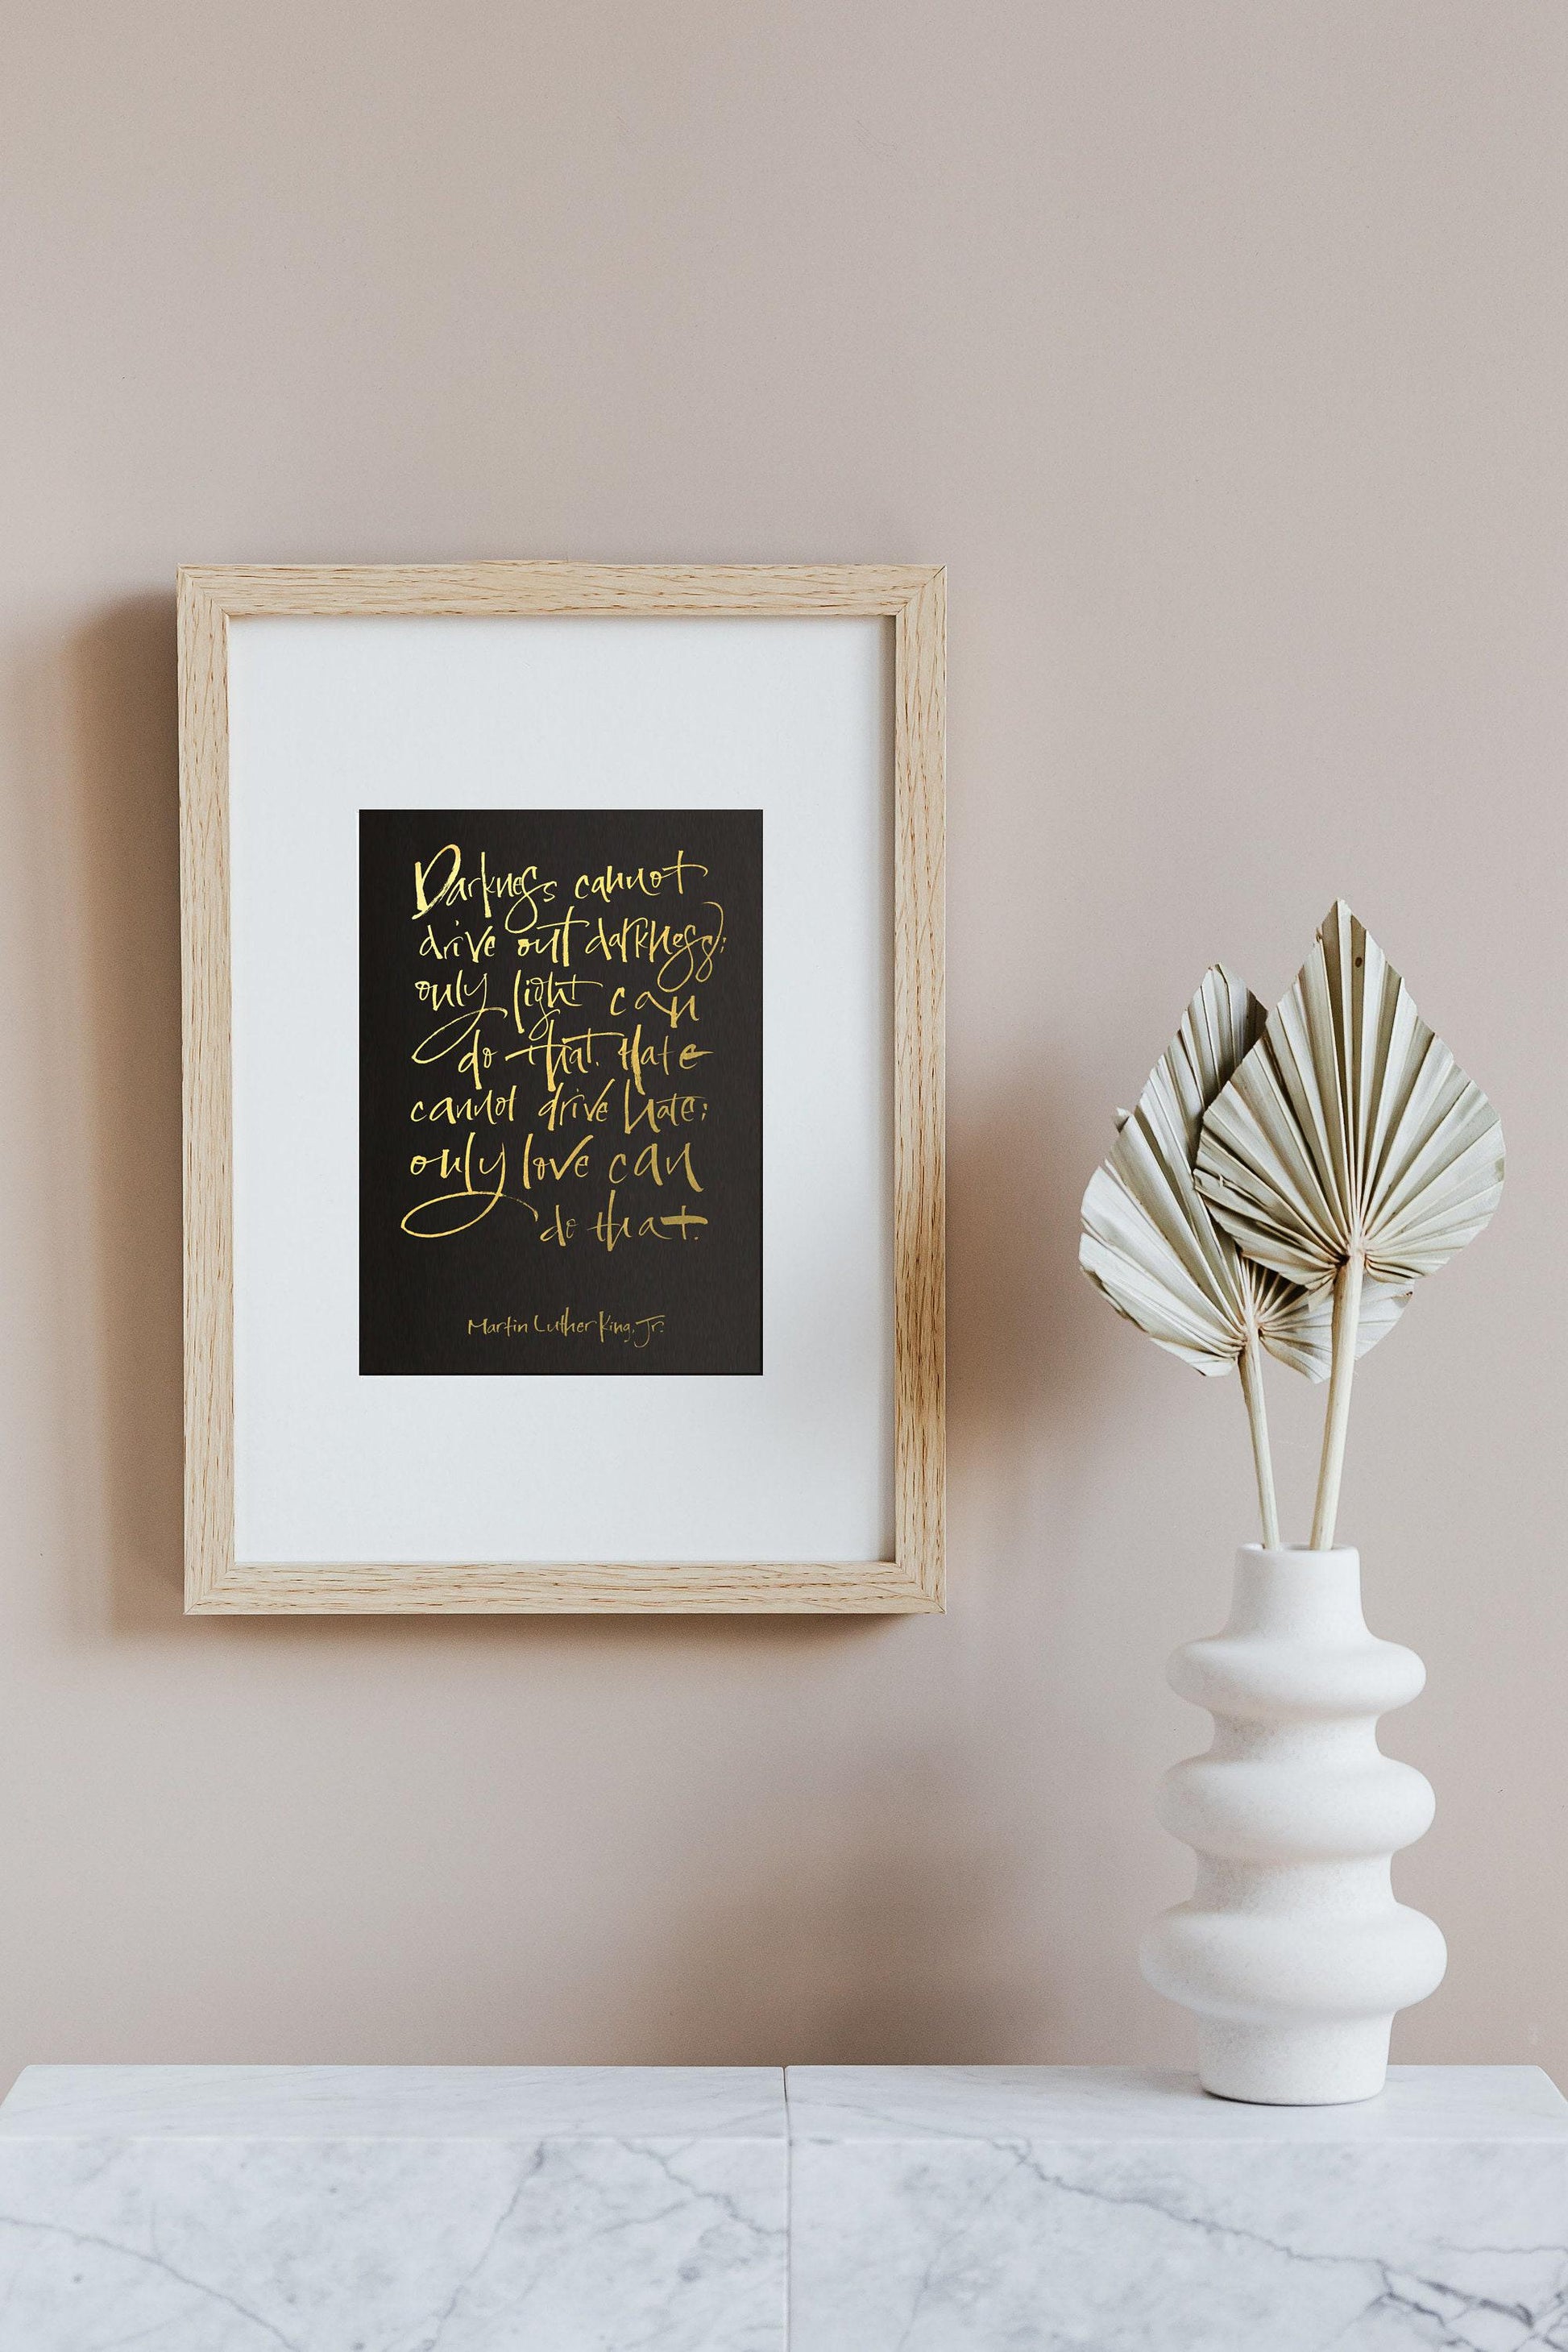 Darkness cannot
drive out darkness;
only light can
do that. Hate
cannot drive hate;
only love can
do that.
Martin Luther King, Jr.